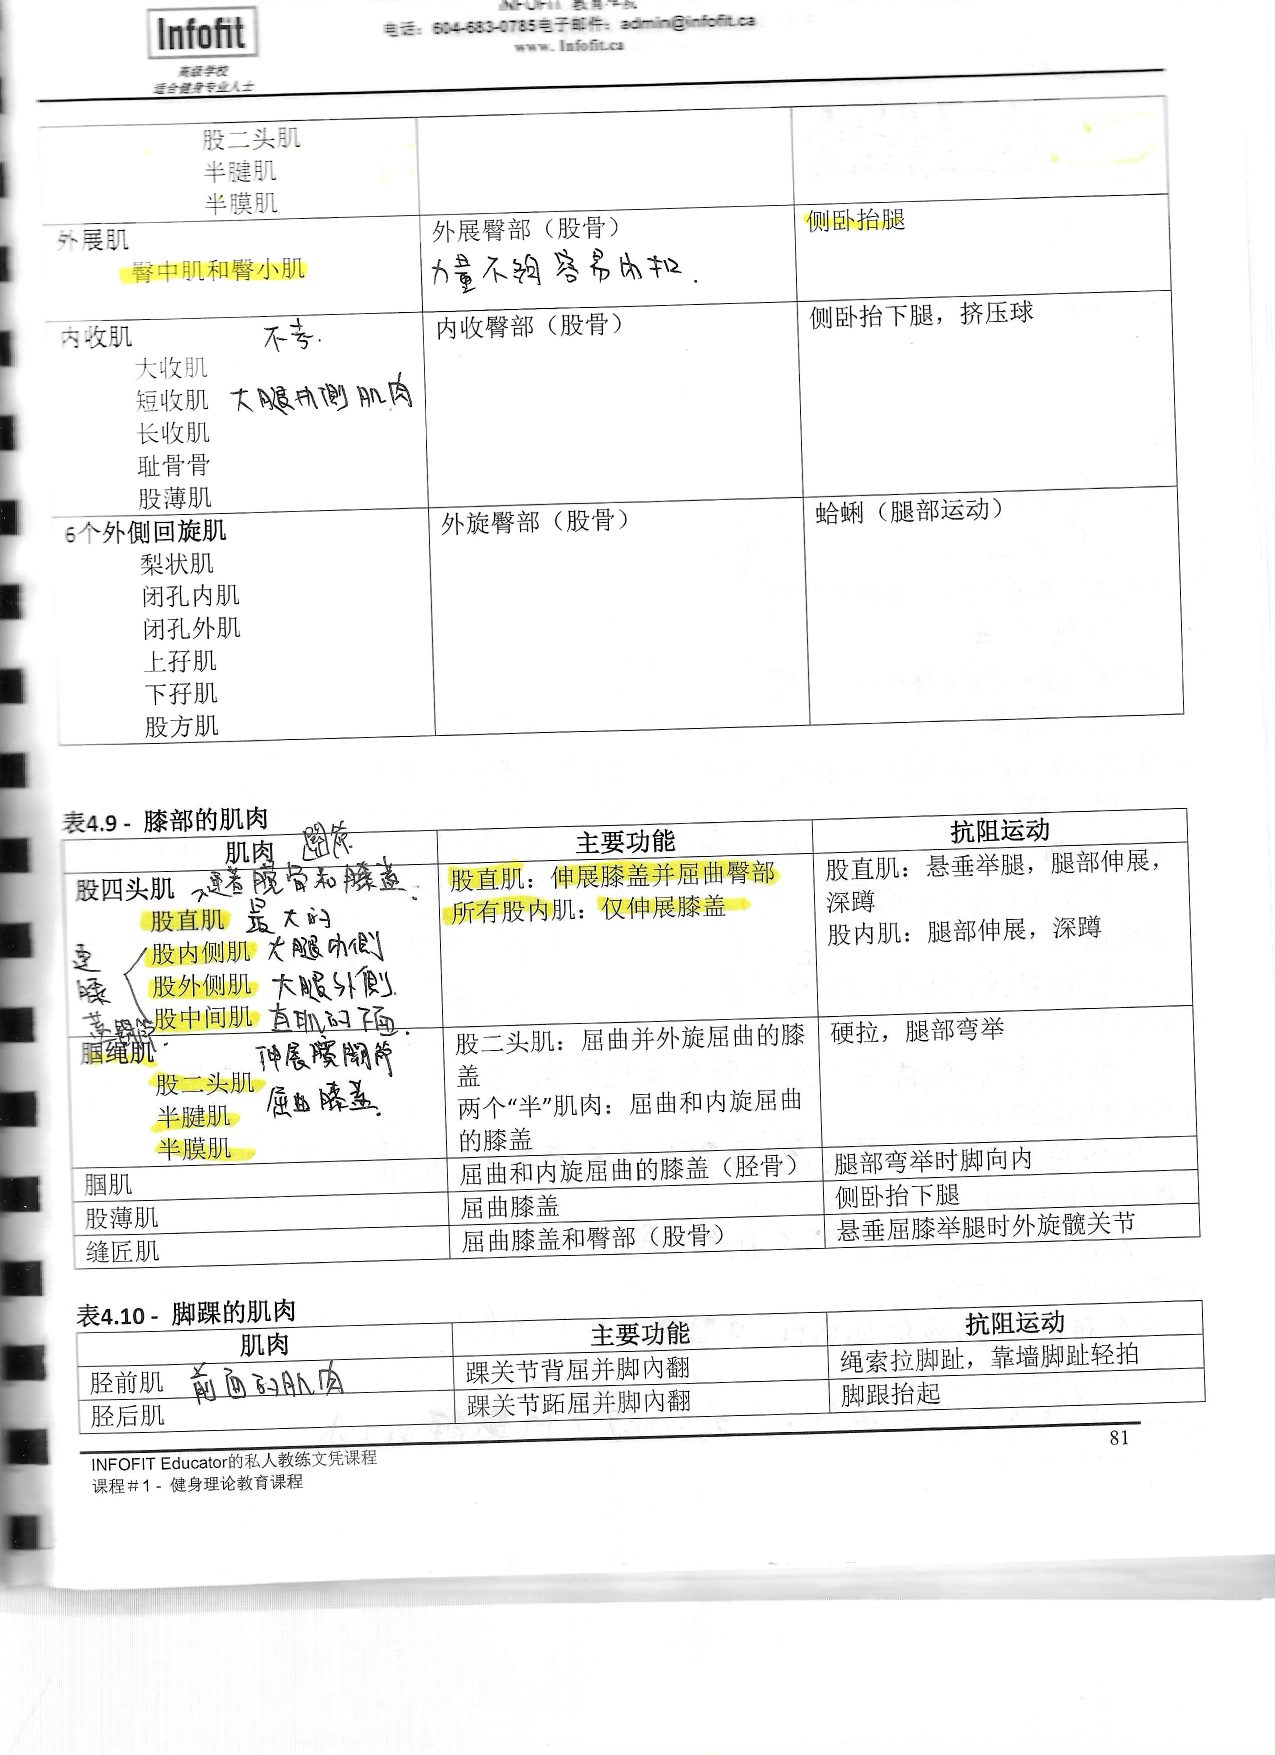 Infofit
高级学校
适合健身专业人士
INFOFIT 教育学院
电话：604-683-0785电子邮件：admin@infofit.ca
www. Infofit.ca
股二头肌
半腱肌
半膜肌
外展肌
臀中肌和臀小肌
外展臀部（股骨）
力量不夠 容易内扣.
侧卧抬腿
内收肌 不考.
大收肌
短收肌 大腿内側肌肉
长收肌
耻骨骨
股薄肌
内收臀部（股骨）
侧卧抬下腿，挤压球
6个外側回旋肌
梨状肌
闭孔内肌
闭孔外肌
上孖肌
下孖肌
股方肌
外旋臀部（股骨）
蛤蜊（腿部运动）
表4.9 - 膝部的肌肉
肌肉 關節
主要功能
抗阻运动
股四头肌 連着髋骨和膝盖.
股直肌 最大的
股内侧肌 大腿内側
股外侧肌 大腿外側.
股中间肌 直肌的下面.
連
膝
蓋關節.
股直肌：伸展膝盖并屈曲臀部
所有股内肌：仅伸展膝盖
股直肌：悬垂举腿，腿部伸展，
深蹲
股内肌：腿部伸展，深蹲
腘绳肌 伸展腰關節
股二头肌 屈曲膝盖.
半腱肌
半膜肌
股二头肌：屈曲并外旋屈曲的膝
盖
两个“半”肌肉：屈曲和内旋屈曲
的膝盖
硬拉，腿部弯举
腘肌
屈曲和内旋屈曲的膝盖（胫骨）
腿部弯举时脚向内
股薄肌
屈曲膝盖
侧卧抬下腿
缝匠肌
屈曲膝盖和臀部（股骨）
悬垂屈膝举腿时外旋髋关节
表4.10 - 脚踝的肌肉
肌肉
主要功能
抗阻运动
胫前肌 前面的肌肉
踝关节背屈并脚內翻
绳索拉脚趾，靠墙脚趾轻拍
胫后肌
踝关节跖屈并脚內翻
脚跟抬起
81
INFOFIT Educator的私人教练文凭课程
课程＃1 - 健身理论教育课程